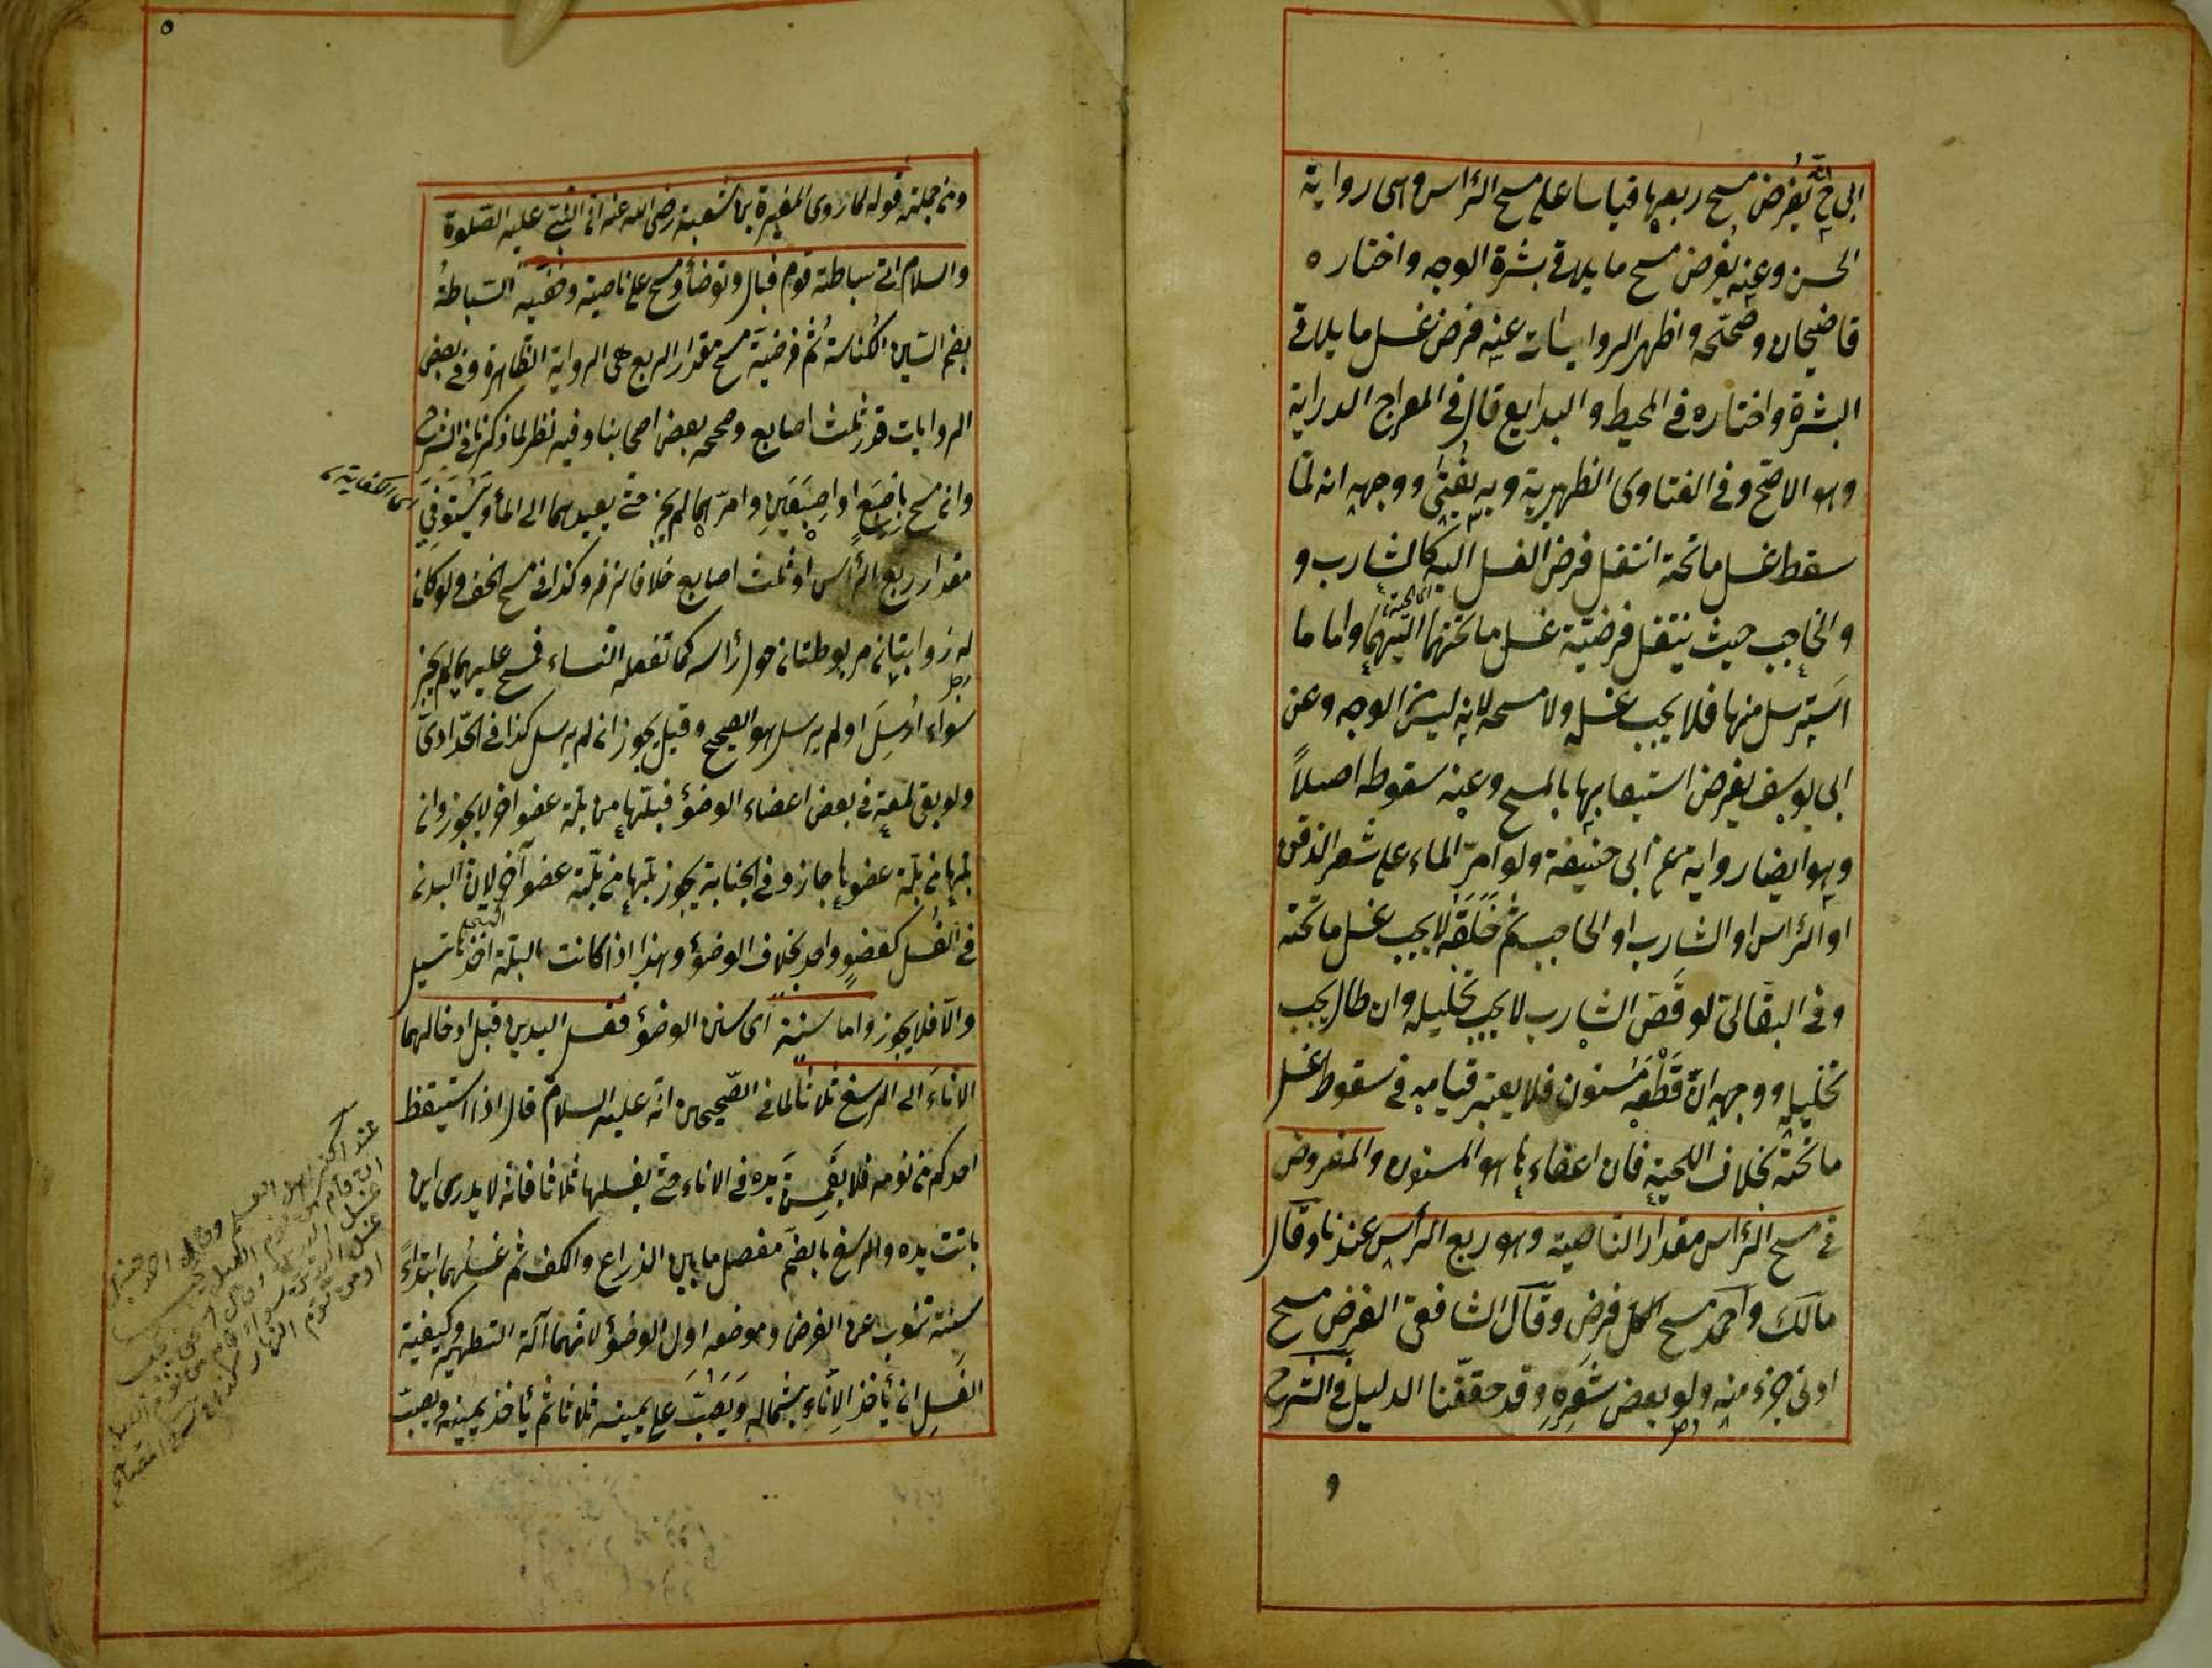 ابى ح انه يفرض مسح ربعها قياسا على مسح الرأس وهى رواية
الحسن وعنه يفرض مسح ما يلاقى بشرة الوجه واختاره
قاضيخان وصححه واظهر الروايات عنه فرض غسل ما يلاقى
البشرة واختاره فى المحيط والبدايع قال فى المعراج الدراية
وهو الاصح وفى الفتاوى الظهيرية وبه يفتى ووجهه انه لما
سقط غسل ما تحته انتقل فرض الغسل اليه كالشارب و
والحاجب حيث ينتقل فرضية غسل ما تحتهما اليهما واما ما
اى لحية
استرسل منها فلا يجب غسله ولا مسحه لانه ليس من الوجه وعن
ابى يوسف يفرض استيعابها بالمسح وعنه سقوطه اصلاً
وهو ايضا رواية عن ابى حنيفة ولو امرّ الماء على شعر الذقن
او الرأس او الشارب او الحاجب ثم حَلَقَه لا يجب غسل ما تحته
وفى البقالى لو قَصَّ الشارب لا يجب تخليله وان طال يجب
تخليله ووجهه انّ قَطْعَه مسنون فلا يعتبر قيامه فى سقوط غسل
ما تحته بخلاف اللحية فان اعفاءها هو المسنون والمفروض
فى مسح الرأس مقدار الناصية وهو ربع الرأس عندنا وقال
مالك واحمد مسح الكل فرض وقال الشافعى الفرض مسح
ادنى جزء منه ولو بعض شعره وقد حققنا الدليل فى الشرح
و
٥
ومن جملته قوله لما روى المغيرة بن شعبة رضى الله عنه ان النبى عليه الصلوة
والسلام اتى سباطة قوم فبال وتوضأ ومسح على ناصيته وخفيه السباطة
بضم السين الكناسة ثم فرضية مسح مقدار الربع هى الرواية الظاهرة وفى بعض
الروايات قدر ثلث اصابع وصححه بعض اصحابنا وفيه نظر لما ذكرنا فى الشرح
وان مسح باصبع او اصبعين وامرّهما لم يجز حتى يعيدهما الى الماء ويستوفى
مقدار ربع الرأس او ثلث اصابع خلافا لزفر وكذا فى مسح الخف ولو كان
له زوابتان مربوطتان حول رأسه كما تفعله النساء فمسح عليهما لم يجز
سواء ارسل او لم يرسل هو الصحيح وقيل يجوز ان لم يرسل كذا فى الحدادى
ولو بقى لمعة فى بعض اعضاء الوضوء فبلّها من بلة عضو آخر لا يجوز وان
بلها من بلة عضوها جاز وفى الجنابة يجوز بلها من بلة عضو آخر لان البدن
فى الغسل كعضو واحد بخلاف الوضوء وهذا اذا كانت البلة اخذتا تسيل
والا فلا يجوز واما سننه اى سنن الوضوء فغسل اليدين قبل ادخالهما
الاناء الى الرسغ ثلاثا لما فى الصحيحين انه عليه السلام قال اذا استيقظ
احدكم من نومه فلا يغمس يده فى الاناء حتى يغسلها ثلاثا فانه لا يدرى اين
باتت يده والرسغ بالضم مفصل ما بين الذراع والكف ثم غسلهما ابتداءً
سنة تنوب عن الفرض وموضعه اول الوضوء لانهما آلة التطهير وكيفية
الغسل ان يأخذ الاناء بشماله ويصب على يمينه ثلاثا ثم يأخذ بيمينه ويصب
عند اكثر اهل العلم وقال احمد حنبل
ان قام من نوم الليل يجب
او من نوم النهار